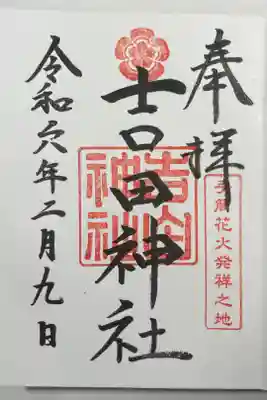 奉拝
手筒花火発祥之地
吉田神社
吉田
神社
令和六年二月九日